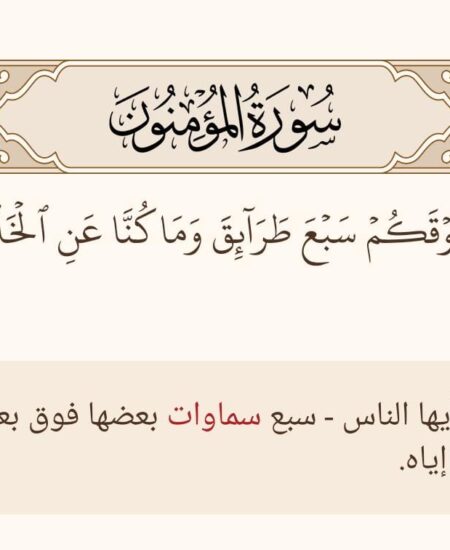 سُورَةُ المُؤْمِنُونَ
وْقَكُمْ سَبْعَ طَرَآئِقَ وَمَا كُنَّا عَنِ ٱلْخَلْ
يها الناس - سبع سماوات بعضها فوق بع
إياه.